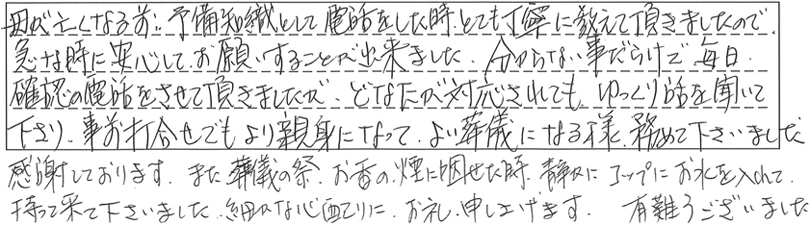 母が亡くなる前、予備知識として電話をした時、とても丁寧に教えて頂きましたので、
急な時に安心してお願いすることが出来ました。分からない事だらけで毎日、
確認の電話をさせて頂きましたが、どなたが対応されても、ゆっくり話を聞いて
下さり、事前打合せでもより親身になって、よい葬儀になる様、務めて下さいました
感謝しております。また葬儀の祭、お香の煙に咽せた時、静かにコップにお水を入れて、
持って来て下さいました。細かな心配りに、お礼、申し上げます。 有難うございました